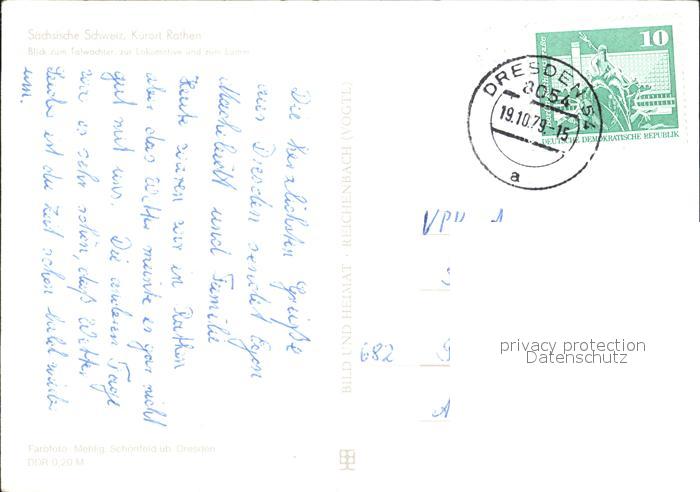 Sächsische Schweiz, Kurort Rathen
Blick zum Talwächter, zur Lokomotive und zum Lamm
Die herzlichsten Grüße
aus Dresden sendet Egon
und Familie
Heute waren wir in Rathen
aber das Wetter meinte es gar nicht
gut mit uns. Die anderen Tage
war es sehr schön, das Wetter,
Leider ist die Zeit schon bald wieder
um.
BILD UND HEIMAT · REICHENBACH (VOGTL)
Farbfoto: Mehlig, Schönfeld üb. Dresden
DDR 0,20 M
10
DEUTSCHE DEMOKRATISCHE REPUBLIK
DRESDEN 54
8054
19.10.79.-15
a
682
privacy protection
Datenschutz